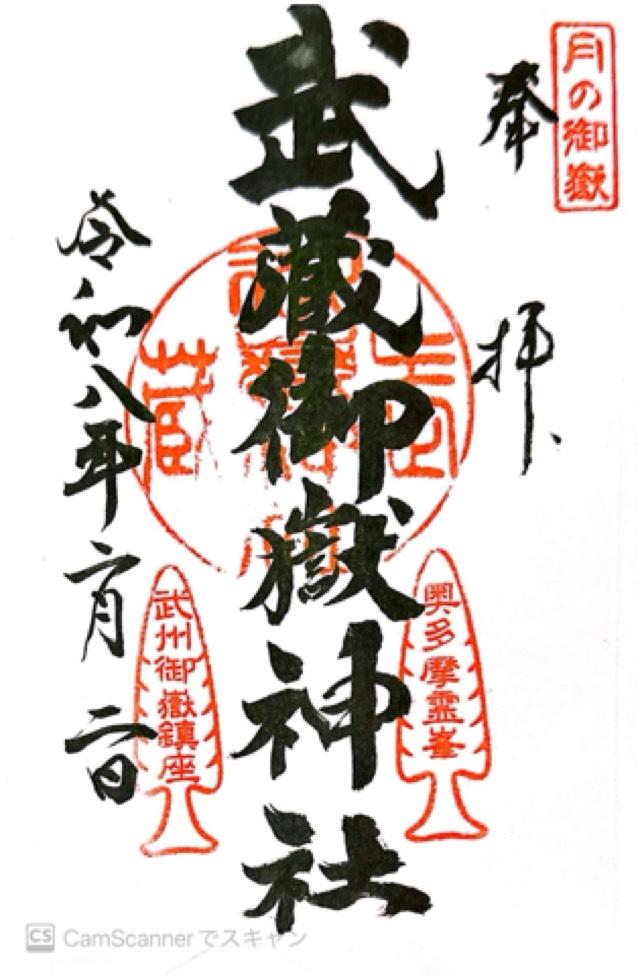 月の御嶽
奉
拝
武蔵御嶽神社
奥多摩霊峯
武州御嶽鎮座
令和八年二月二日
CS CamScannerでスキャン